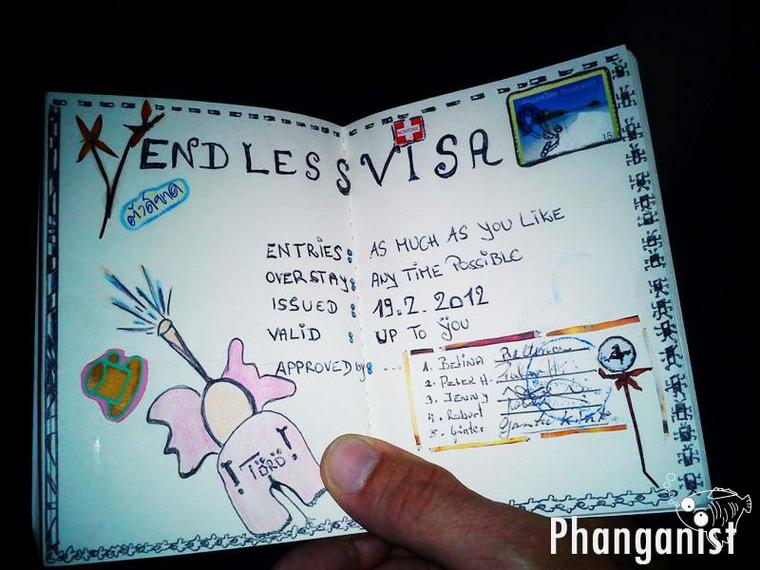 ENDLESS VISA
ENTRIES: AS MUCH AS YOU LIKE
OVERSTAY: ANY TIME POSSIBLE
ISSUED : 19.2. 2012
VALID : UP TO YOU
APPROVED by: ....
1. BETINA
2. PETER H.
3. JENNY
4. Robert
5. Günter
TÖRÖ
15
Phanganist